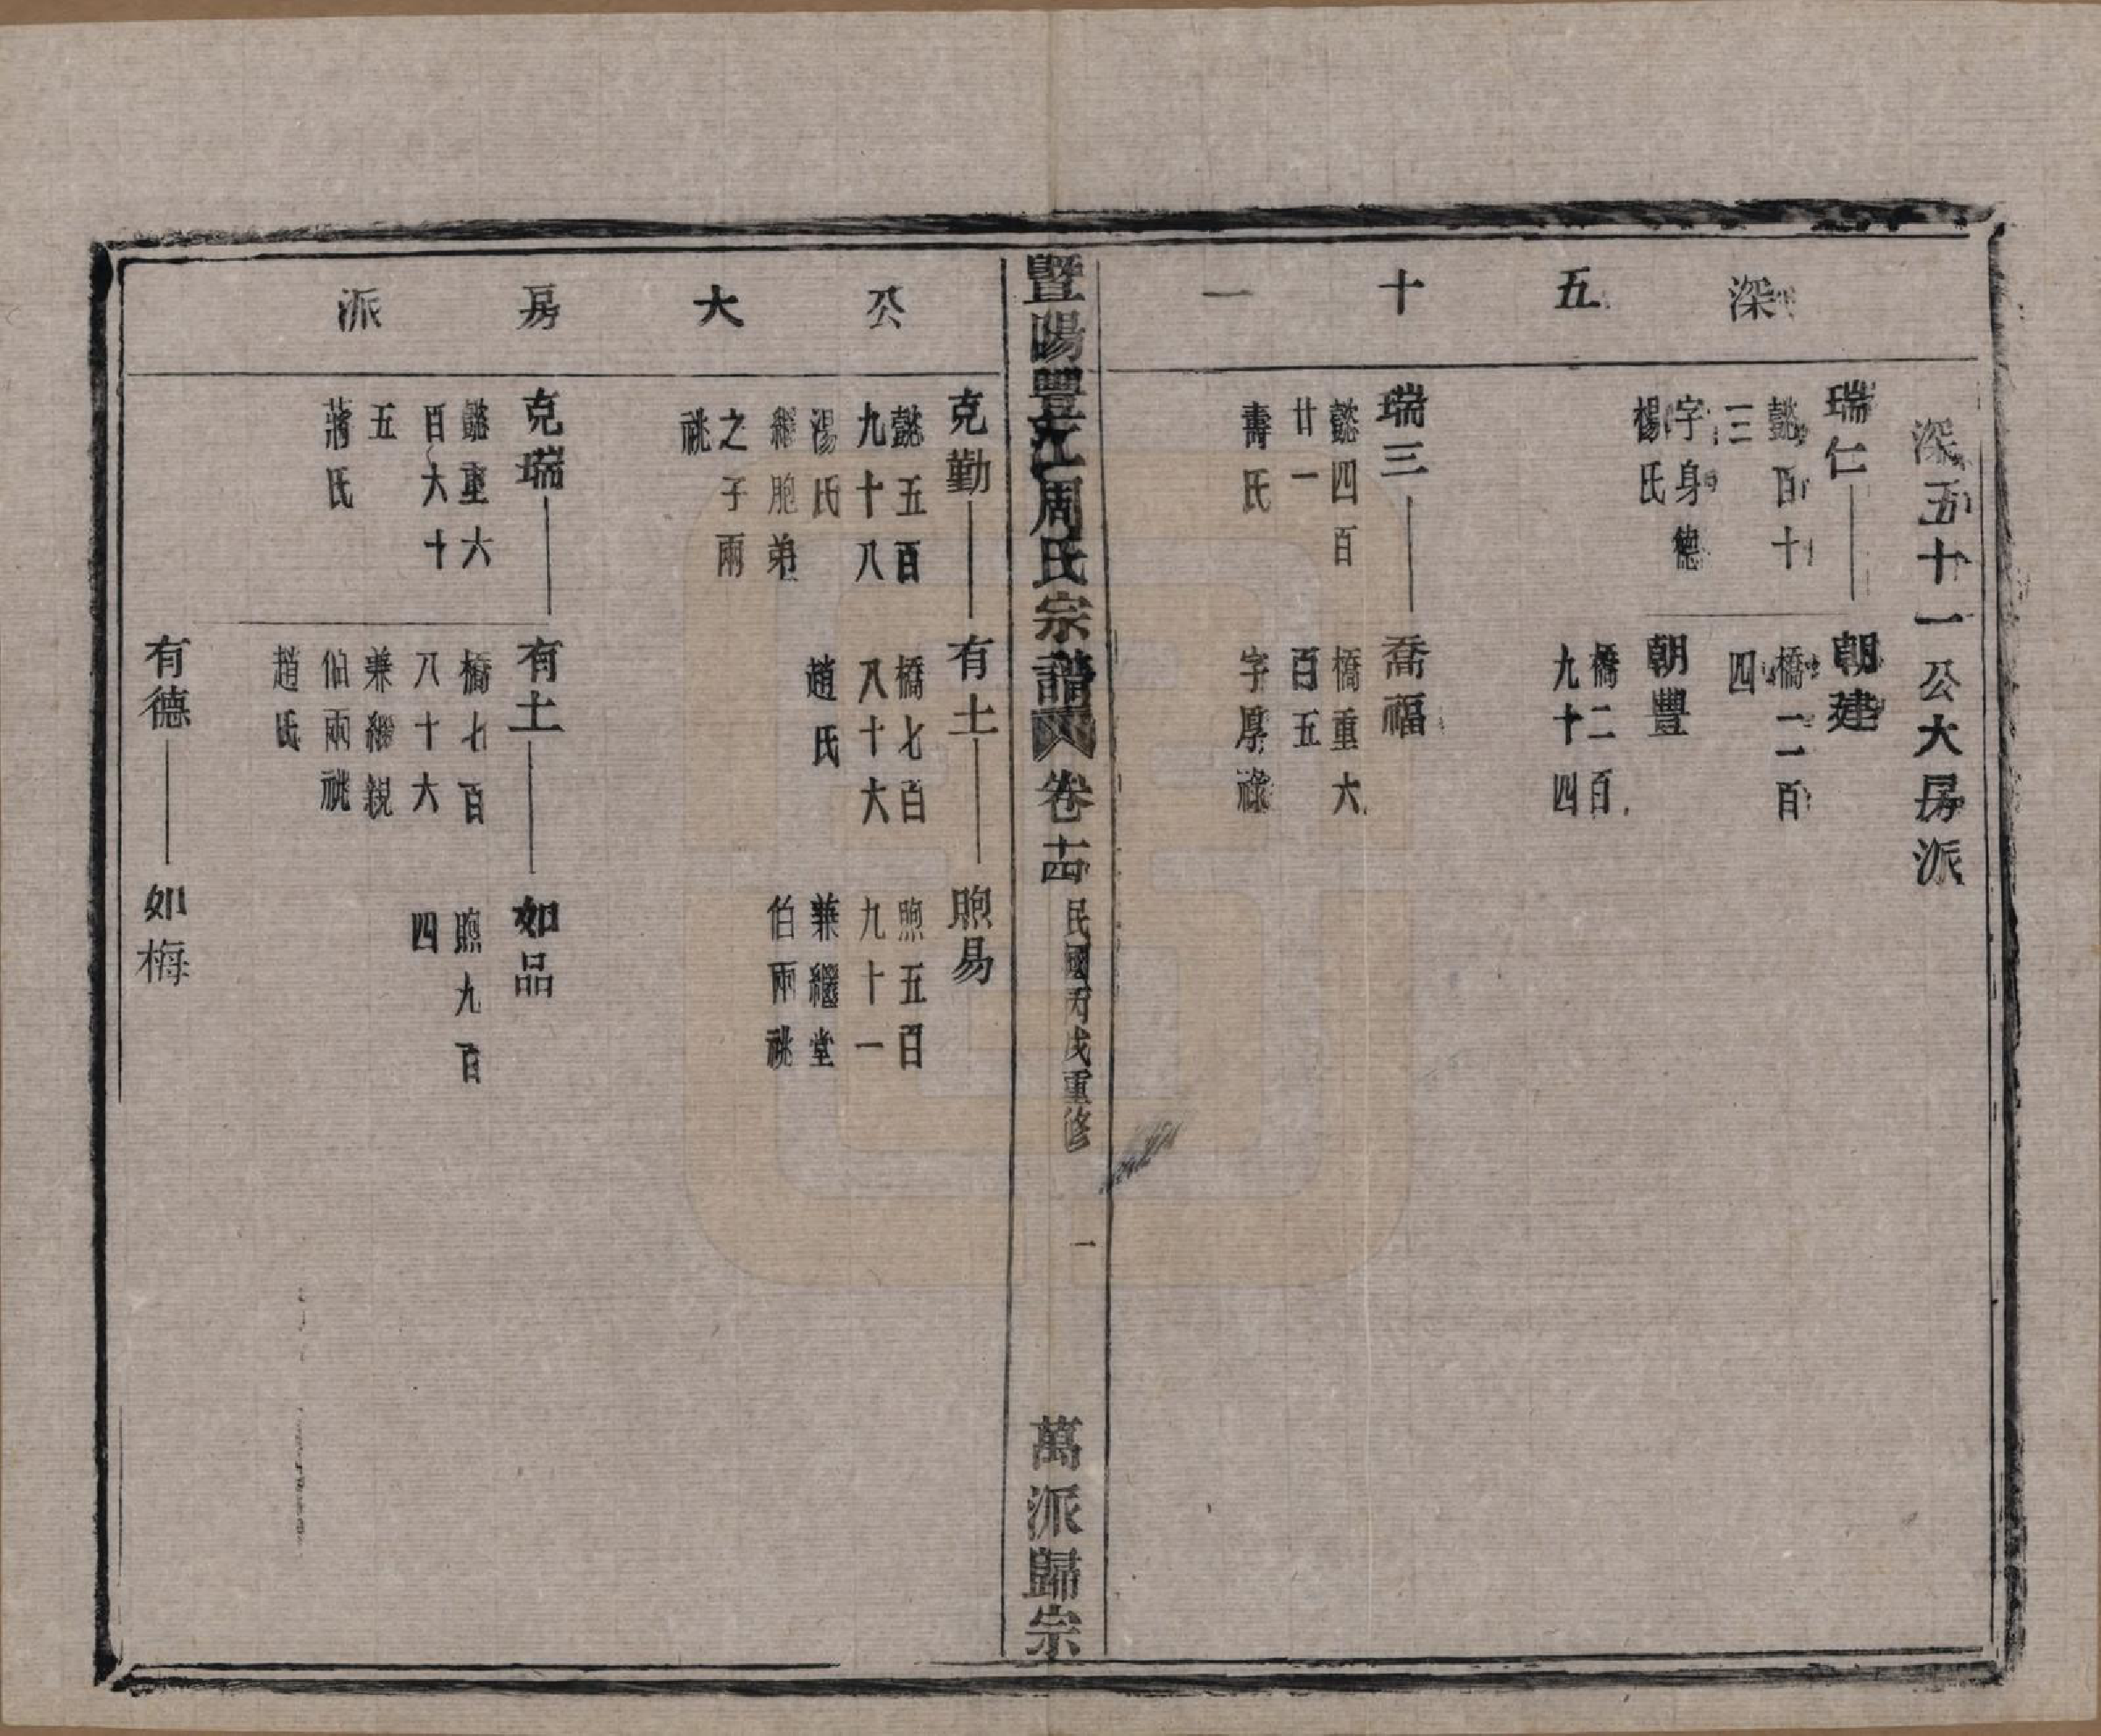 深五十一
深五十一公大房派
瑞仁
懿百十
三
字身德
楊氏
朝建
橋一百
四
朝豐
橋二百
九十四
瑞三
懿四百
廿一
壽氏
喬福
橋重六
百五
字厚祿
暨陽豐江周氏宗譜 卷十四 民國丙戌重修 一 萬派歸宗
公大房派
克勤
懿五百
九十八
湯氏
繼胞弟
之子兩
祧
有土
橋七百
八十六
趙氏
煦易
煦五百
九十一
兼繼堂
伯兩祧
克瑞
懿重六
百六十
五
蔣氏
有土
橋七百
八十六
兼繼親
伯兩祧
趙氏
如品
煦九百
四
有德
如梅